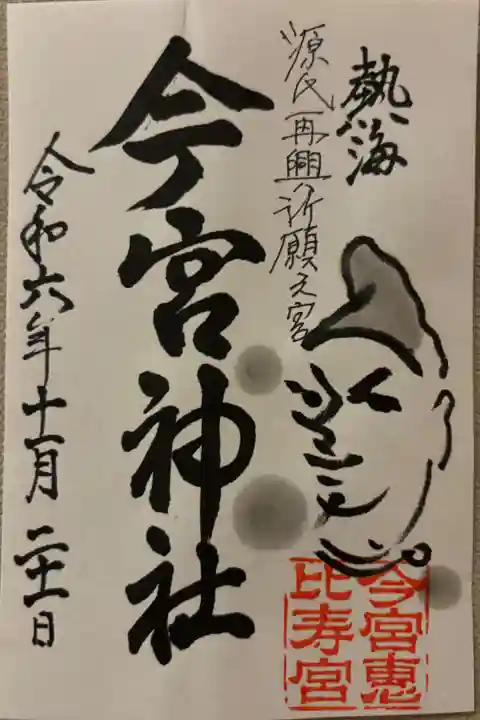 熱海
源氏再興祈願之宮
今宮神社
令和六年十一月二十一日
今宮恵
比寿宮